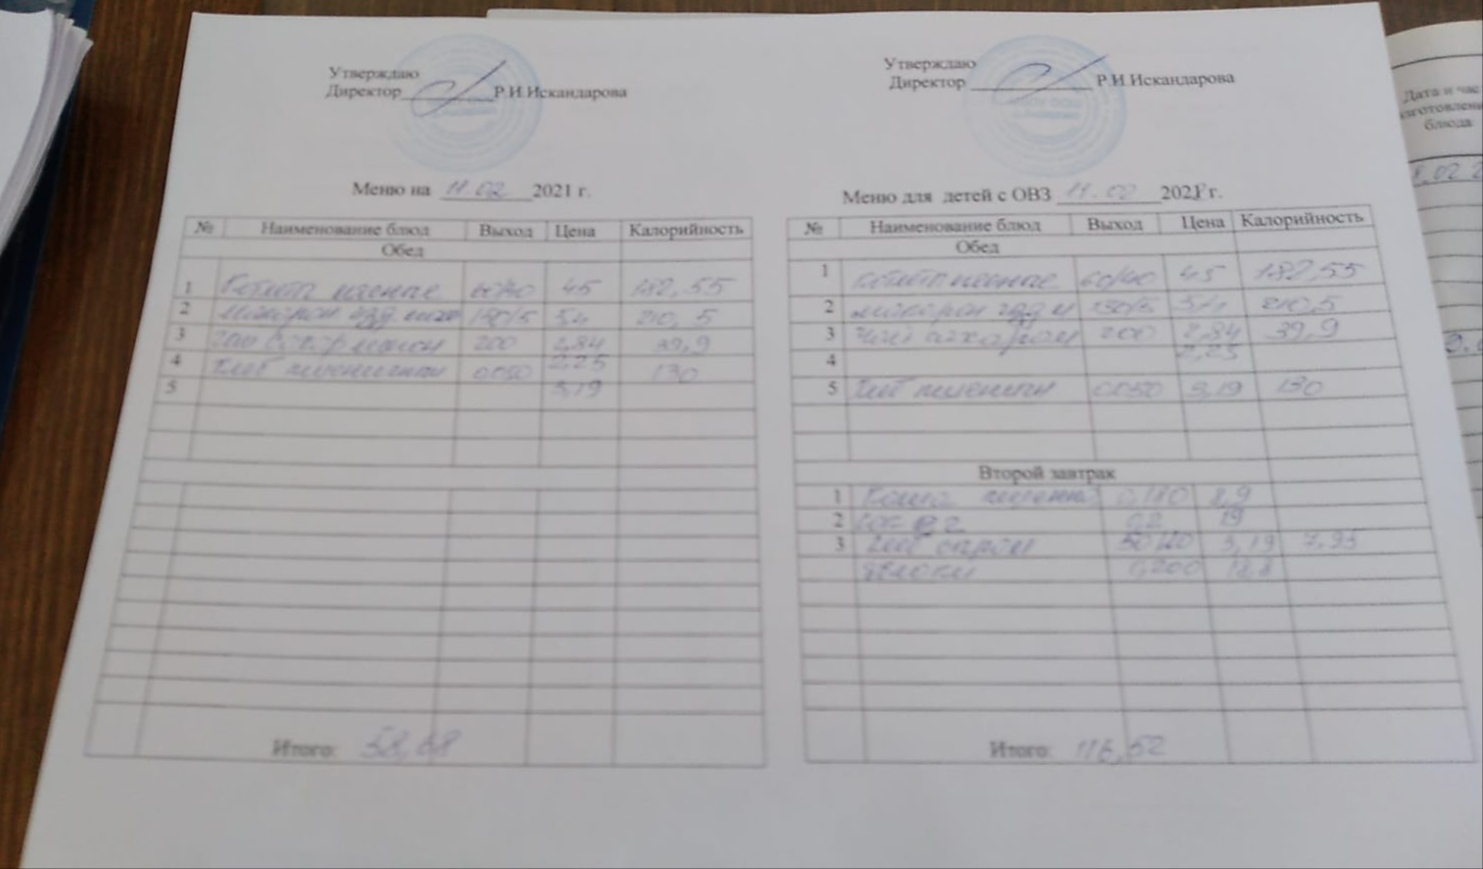 Утверждаю
Директор Р.И.Искандарова
Меню на 11.02 2021 г.
№ Наименование блюд Выход Цена Калорийность
Обед
1 Котлет мясные 60/40 45 182,55
2 макарон изд 150/5 5,4 210,5
3 200 2,84 39,9
4 Хлеб пшеничный 0,050 2,25 130
5 3,19
Итого: 58,68
Утверждаю
Директор Р.И.Искандарова
Меню для детей с ОВЗ 11.02 2021 г.
№ Наименование блюд Выход Цена Калорийность
Обед
1 Котлет мясные 60/40 45 182,55
2 макарон изд 150/5 5,4 210,5
3 Чай сахаром 200 2,84 39,9
4 2,25
5 Хлеб пшеничн 0,050 3,19 130
Второй завтрак
1 Каша 0,180 8,9
2 0,2 19
3 Хлеб сыром 50/20 3,19 7,95
яблоки 0,200
Итого: 116,52
Дата и час
изготовления
блюда